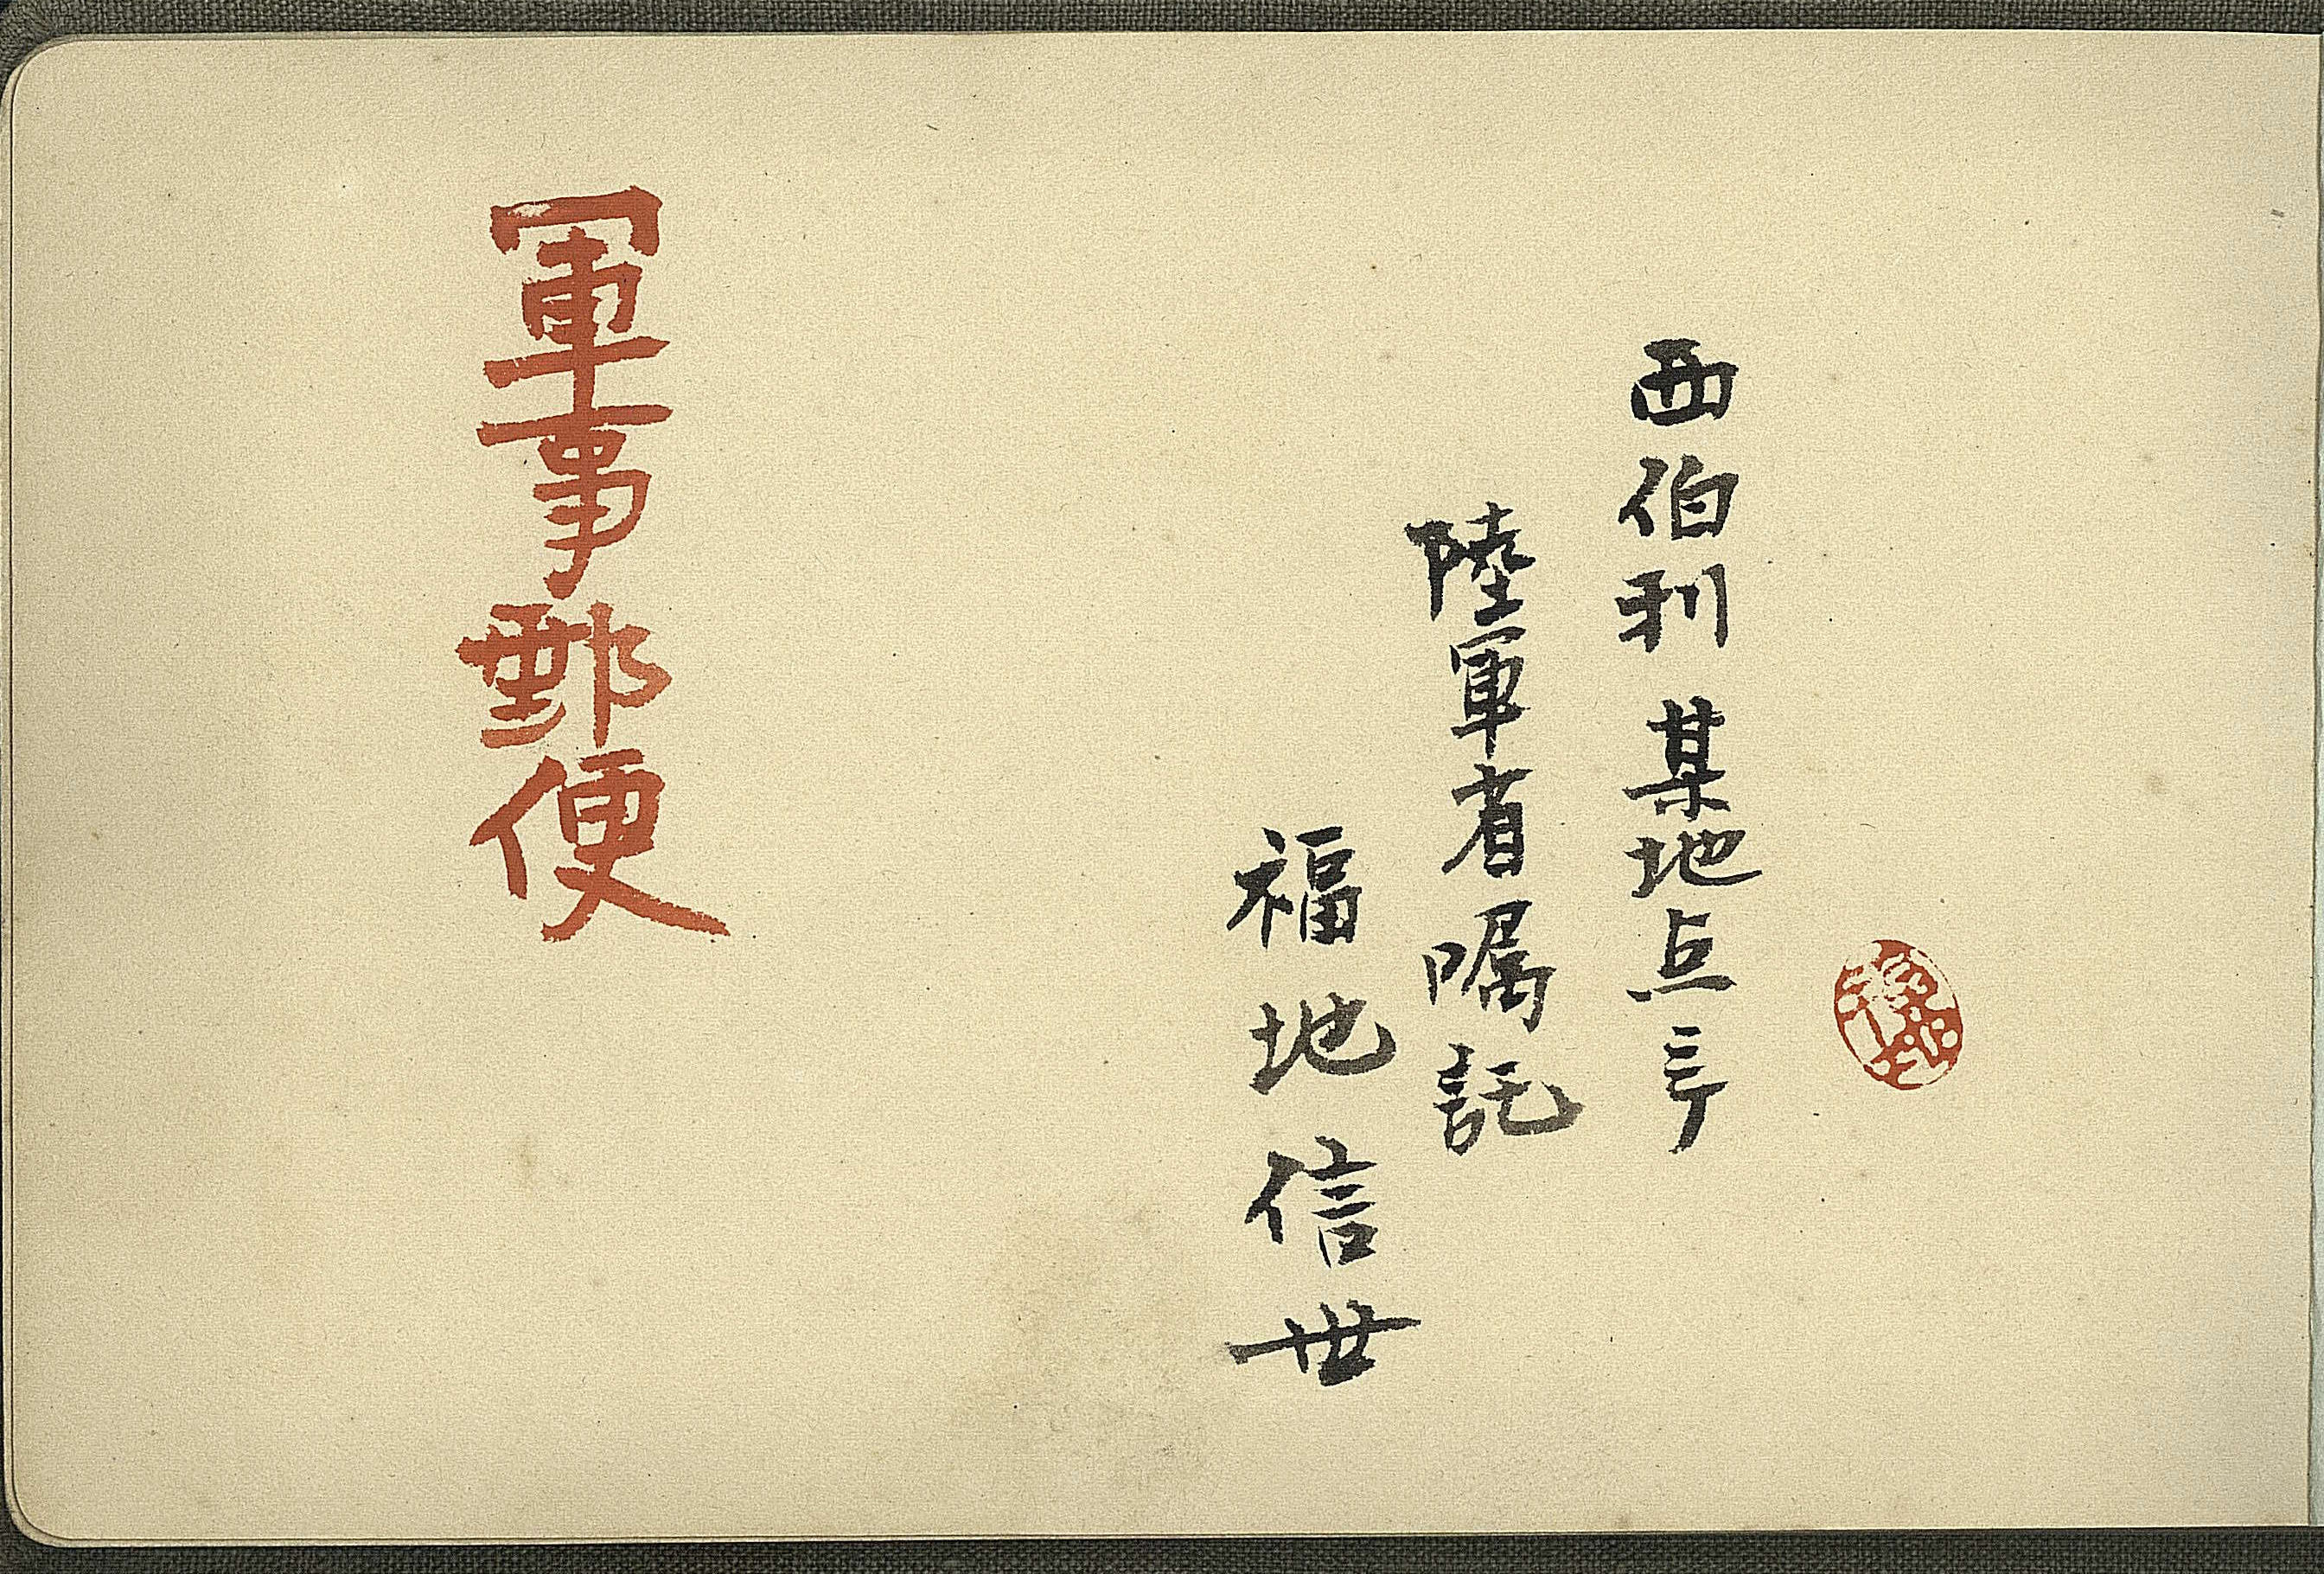 西伯利 某地点ニテ
陸軍省嘱託
福地信世
軍事郵便